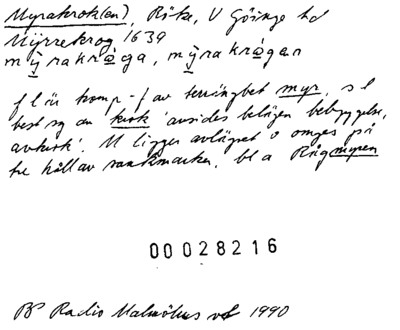 Myrakrok(en), Röke, V Göinge hd
Myrrekrog 1639
mỳrakråga, mỳrakrågan
f l är komp -f av terrängbet myr, s l
best sg av krok 'avsides belägen bebyggelse,
avkrok'. M ligger avlägset o omges på
tre håll av sankmarker, bl a Rågmyren
00028216
BP Radio Malmöhus 1990